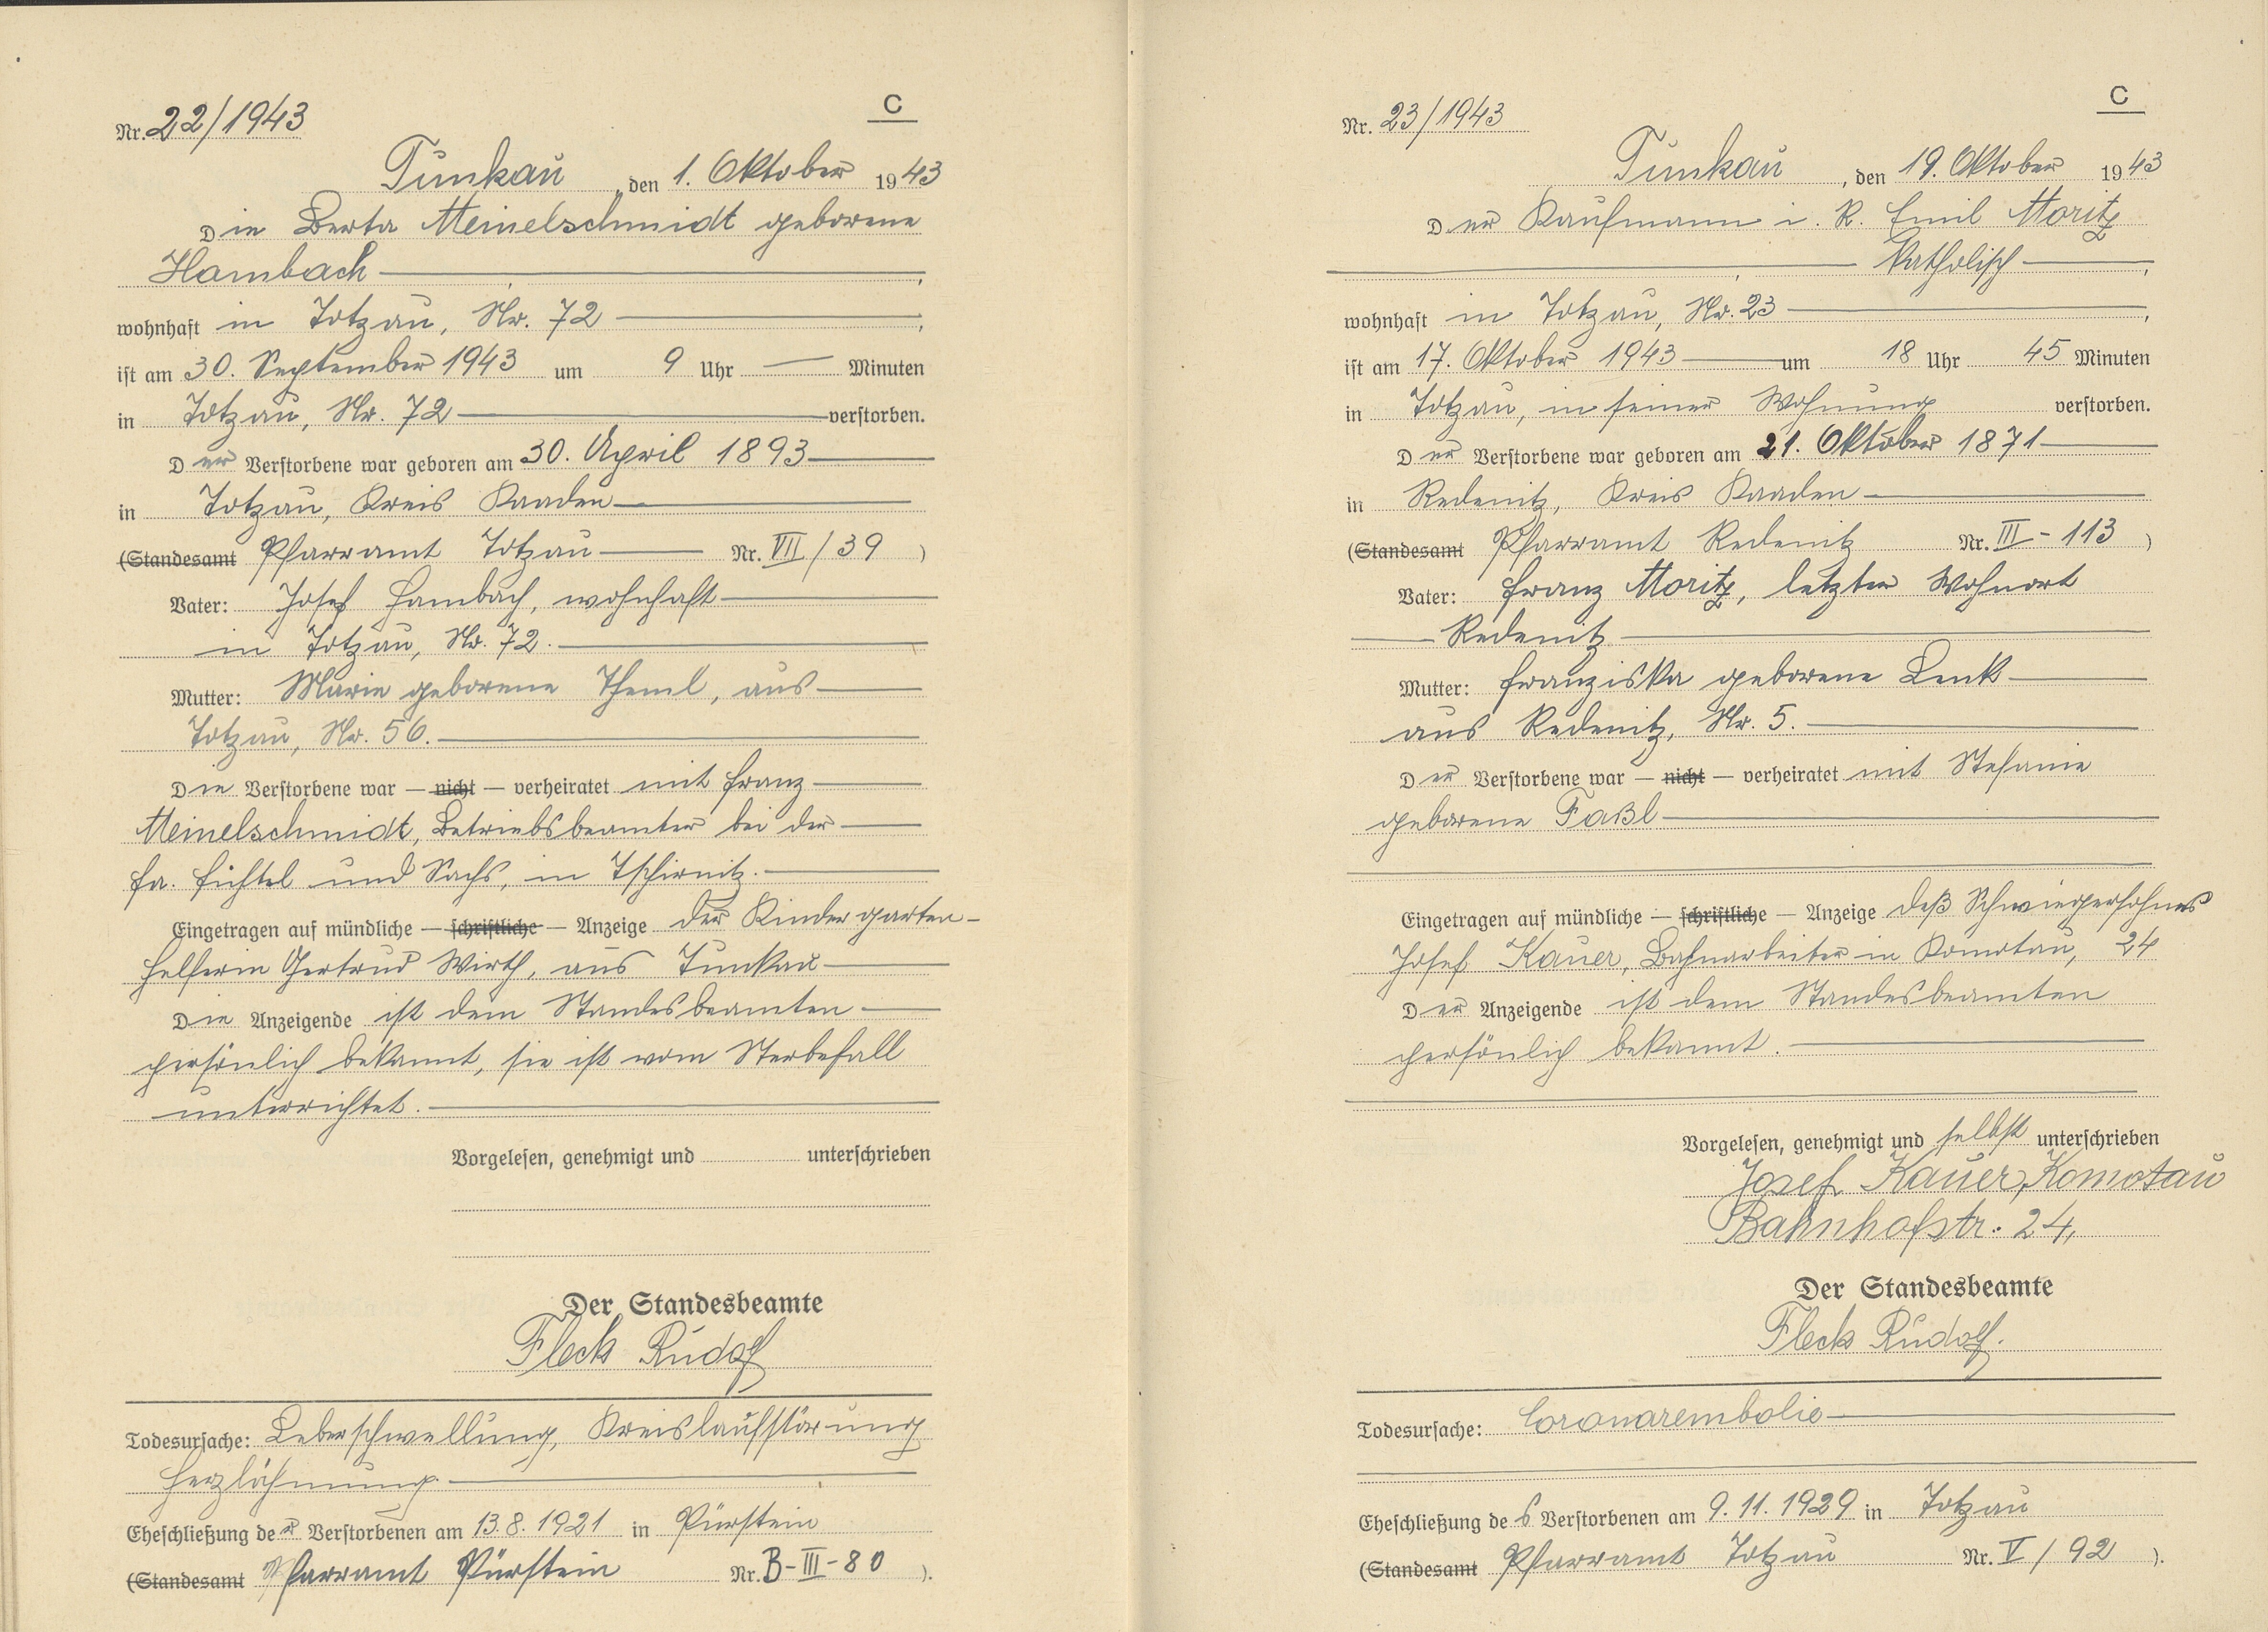 C
Nr. 22/1943
Tunkau, den 1. Oktober 1943
Die Berta Meinelschmidt geborene
Hambach
wohnhaft in Totzau, Nr. 72,
ist am 30. September 1943 um 9 Uhr — Minuten
in Totzau, Nr. 72 verstorben.
Der Verstorbene war geboren am 30. April 1893
in Totzau, Kreis Kaaden
(Standesamt Pfarramt Totzau Nr. VII/39)
Vater: Josef Hambach, wohnhaft
in Totzau, Nr. 72.
Mutter: Marie geborene Theml, aus
Totzau, Nr. 56.
Die Verstorbene war — nicht — verheiratet mit Franz
Meinelschmidt, Betriebsbeamter bei der
Fa. Fichtel und Sachs, in Tschirnitz.
Eingetragen auf mündliche — schriftliche — Anzeige der Kindergarten-
helferin Gertrud Wirth, aus Tunkau
Die Anzeigende ist dem Standesbeamten
persönlich bekannt, sie ist vom Sterbefall
unterrichtet.
Vorgelesen, genehmigt und unterschrieben
Der Standesbeamte
Fleck Rudolf
Todesursache: Leberschwellung, Kreislaufstörung
Herzlähmung.
Eheschließung der Verstorbenen am 13.8.1921 in Pürstein
(Standesamt Pfarramt Pürstein Nr. B-III-80).
C
Nr. 23/1943
Tunkau, den 19. Oktober 1943
Der Kaufmann i. R. Emil Moritz
Katholisch,
wohnhaft in Totzau, Nr. 23,
ist am 17. Oktober 1943 um 18 Uhr 45 Minuten
in Totzau, in seiner Wohnung verstorben.
Der Verstorbene war geboren am 21. Oktober 1871
in Redenitz, Kreis Kaaden
(Standesamt Pfarramt Redenitz Nr. III-113)
Vater: Franz Moritz, letzter Wohnort
Redenitz
Mutter: Franziska geborene Lenk
aus Redenitz, Nr. 5.
Der Verstorbene war — nicht — verheiratet mit Stefanie
geborene Faßl
Eingetragen auf mündliche — schriftliche — Anzeige deß Schwiegersohnes
Josef Kauer, Bahnarbeiter in Komotau, 24
Der Anzeigende ist dem Standesbeamten
persönlich bekannt.
Vorgelesen, genehmigt und selbst unterschrieben
Josef Kauer, Komotau
Bahnhofstr. 24,
Der Standesbeamte
Fleck Rudolf.
Todesursache: Coronarembolie
Eheschließung des Verstorbenen am 9.11.1929 in Totzau
(Standesamt Pfarramt Totzau Nr. V/92).